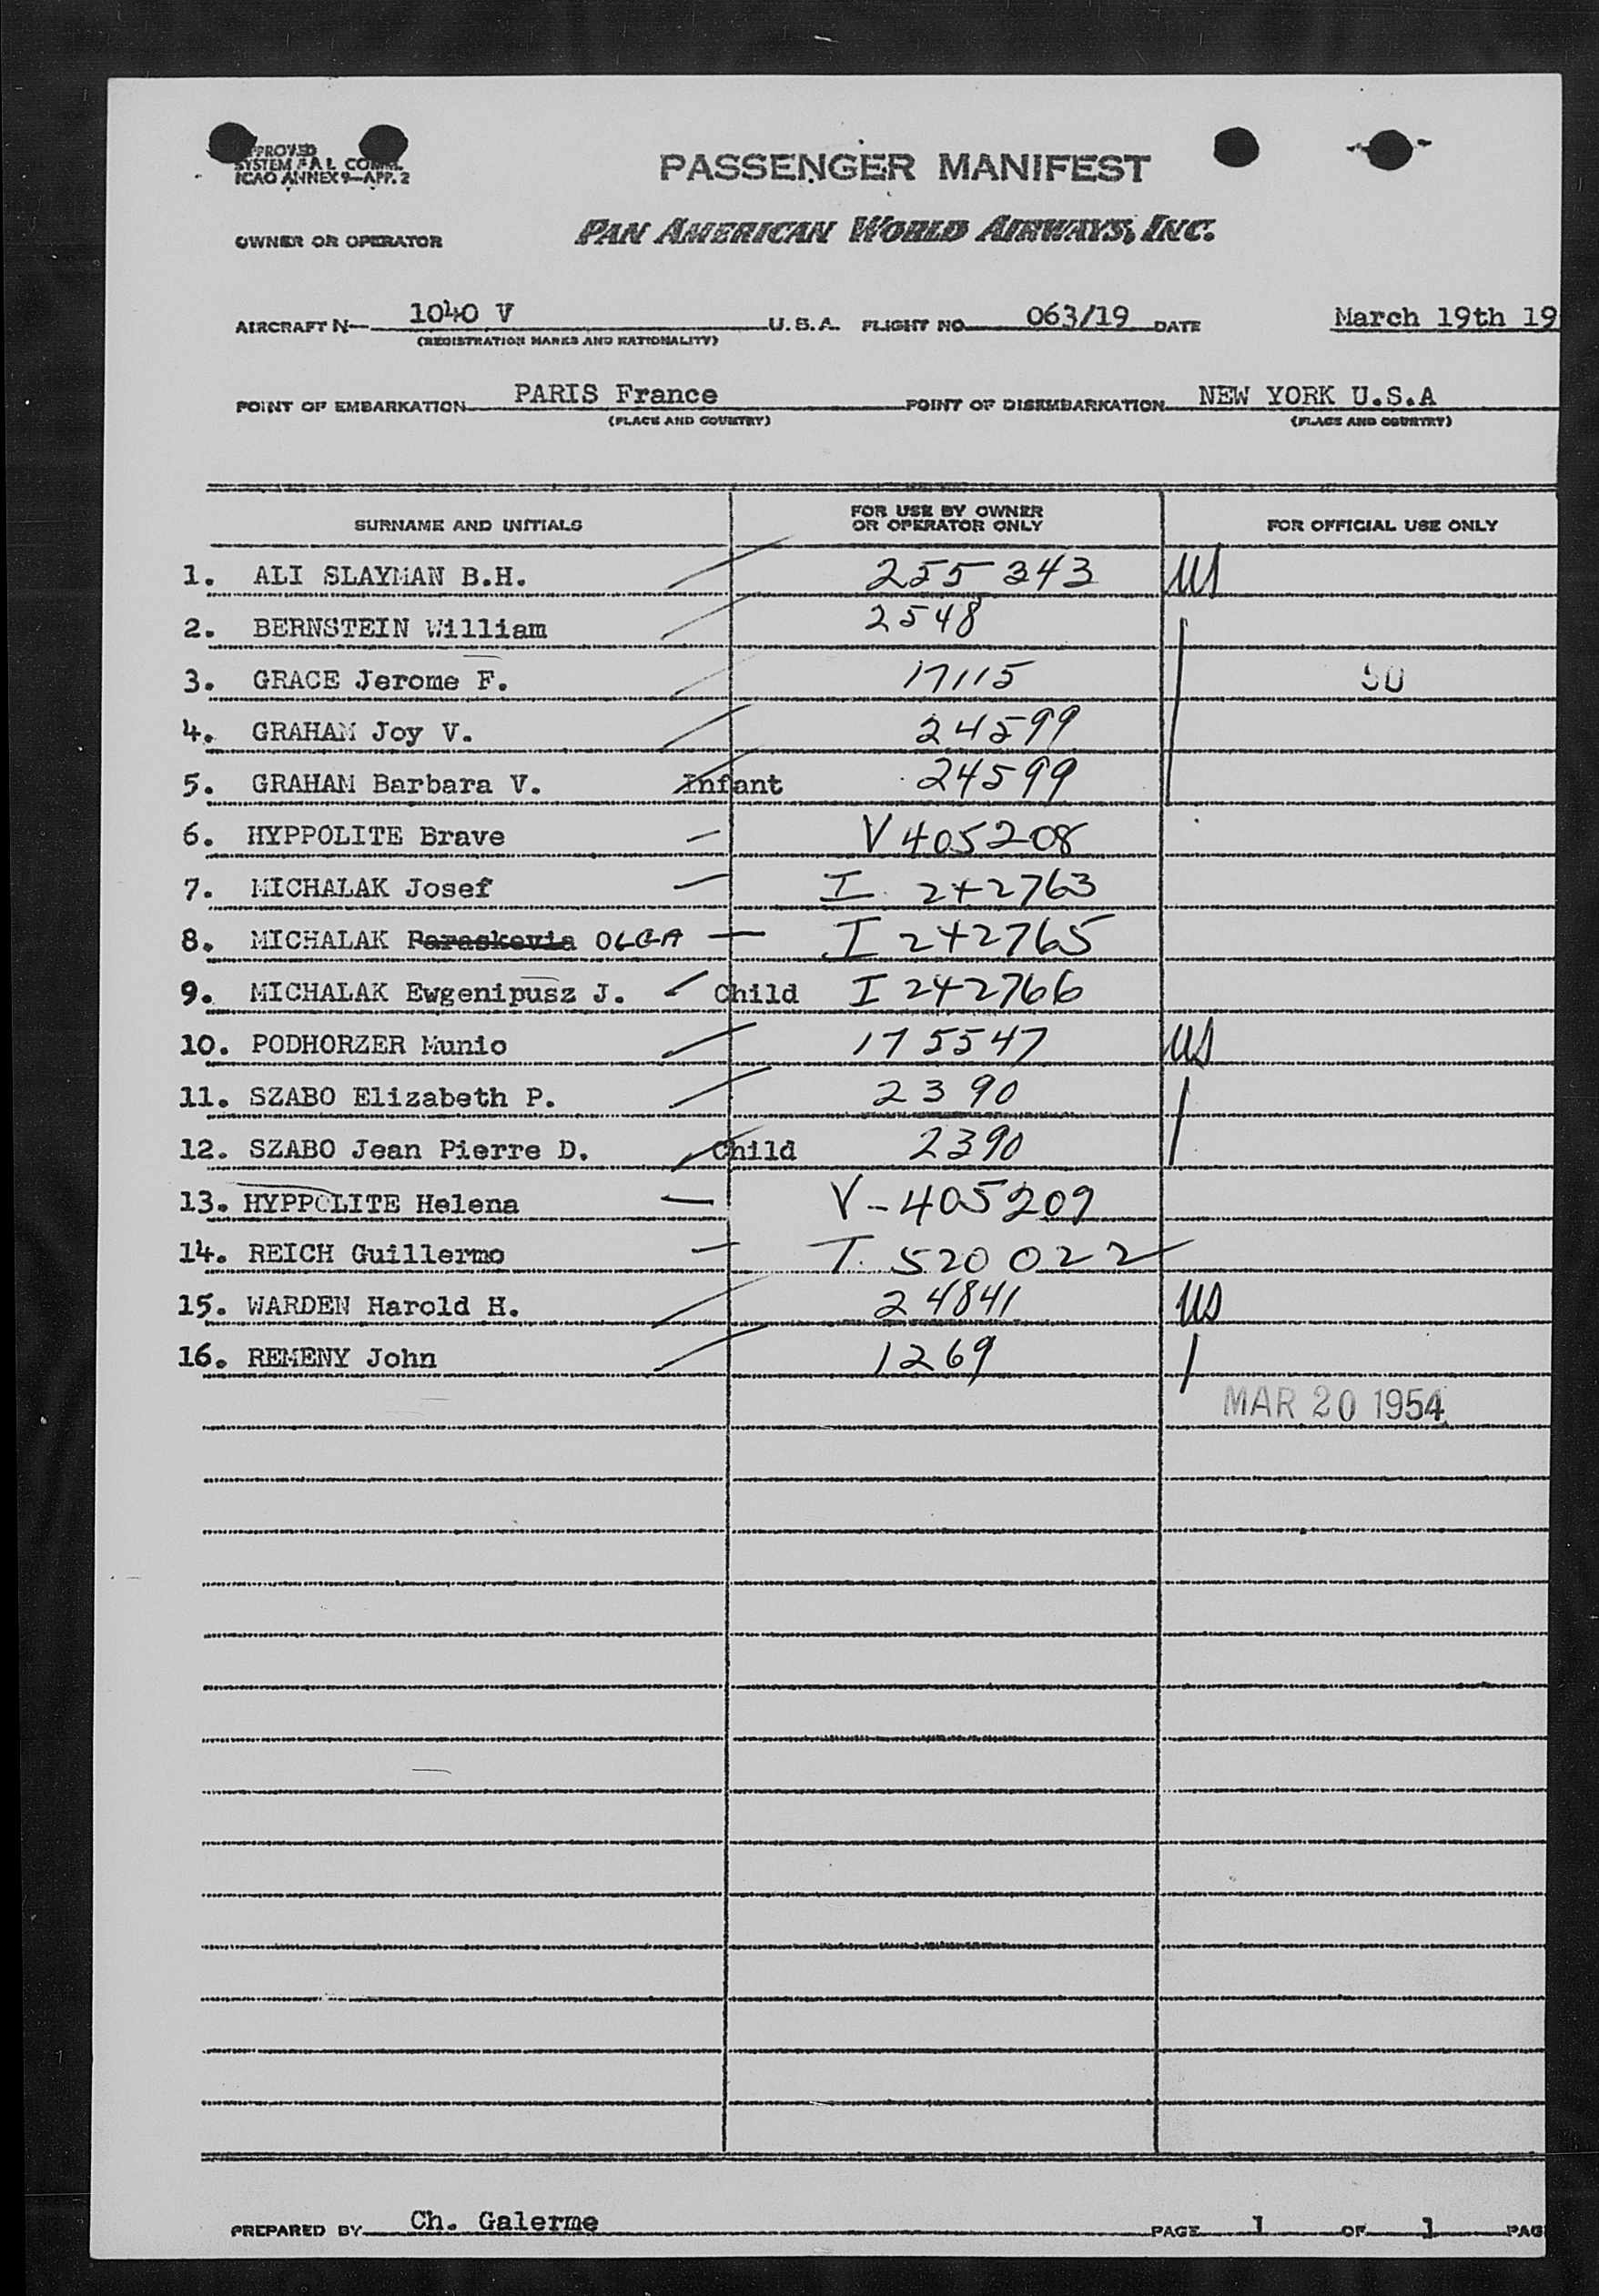 APPROVED
SYSTEM F.A.L. COMM.
ICAO ANNEX 9—APP. 2
PASSENGER MANIFEST
OWNER OR OPERATOR PAN AMERICAN WORLD AIRWAYS, INC.
AIRCRAFT N— 1040 V U.S.A. FLIGHT NO. 063/19 DATE March 19th 19
(REGISTRATION MARKS AND NATIONALITY)
POINT OF EMBARKATION PARIS France POINT OF DISEMBARKATION NEW YORK U.S.A
(PLACE AND COUNTRY) (PLACE AND COUNTRY)
SURNAME AND INITIALS FOR USE BY OWNER OR OPERATOR ONLY FOR OFFICIAL USE ONLY
1. ALI SLAYMAN B.H. 255343 US
2. BERNSTEIN William 2548
3. GRACE Jerome F. 17115 50
4. GRAHAM Joy V. 24599
5. GRAHAM Barbara V. Infant 24599
6. HYPPOLITE Brave V 405208
7. MICHALAK Josef I 242763
8. MICHALAK Paraskevia OLGA I 242765
9. MICHALAK Ewgenipusz J. Child I 242766
10. PODHORZER Munio 175547 US
11. SZABO Elizabeth P. 2390
12. SZABO Jean Pierre D. Child 2390
13. HYPPOLITE Helena V-405209
14. REICH Guillermo T. 520022
15. WARDEN Harold H. 24841 US
16. REMENY John 1269
MAR 20 1954
PREPARED BY Ch. Galerme PAGE 1 OF 1 PAG